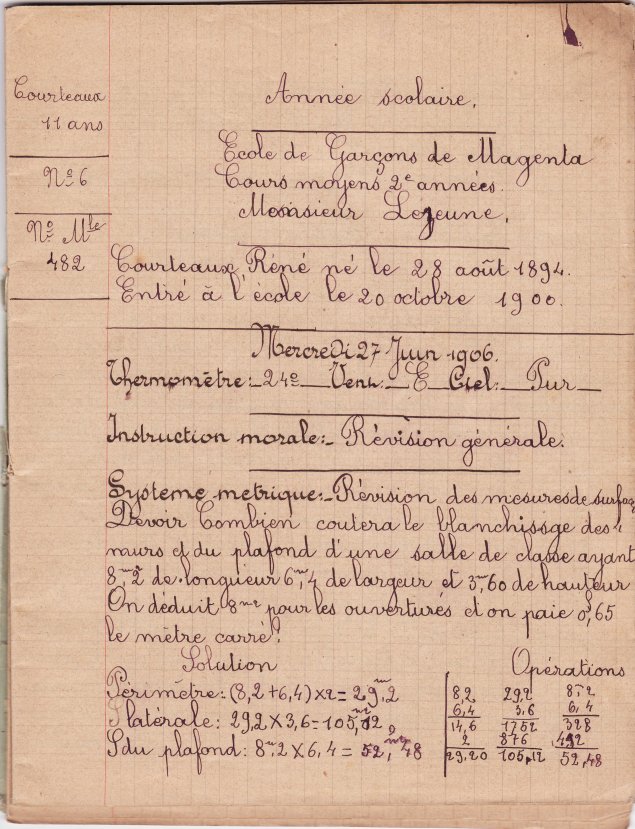 Courteaux
11 ans
Nº 6
Nº Mle
482
Année scolaire.
Ecole de Garçons de Magenta
Cours moyens 2e années.
Monsieur Lejeune.
Courteaux Réné né le 28 août 1894.
Entré à l'école le 20 octobre 1900.
Mercredi 27 Juin 1906.
Thermomètre:_24º_Vent:_E_Ciel:_Pur_
Instruction morale:_Révision générale.
Systeme metrique:_Révision des mesures de surfaç
Devoir Combien coutera le blanchissge des
murs et du plafond d'une salle de classe ayant
8,m2 de longuieur 6,m4 de largeur et 3,m60 de hauteur
On déduit 8m2 pour les ouverturés et on paie 0,f65
le mètre carré?
Solution
Périmètre: (8,2+6,4)×2= 29,m2
S latérale: 29,2×3,6=105,m212
S du plafond: 8,m2×6,4= 52,m248
Opérations
8,2 29,2 8,2
6,4 3,6 6,4
14,6 1752 328
2 876 492
29,20 105,12 52,48